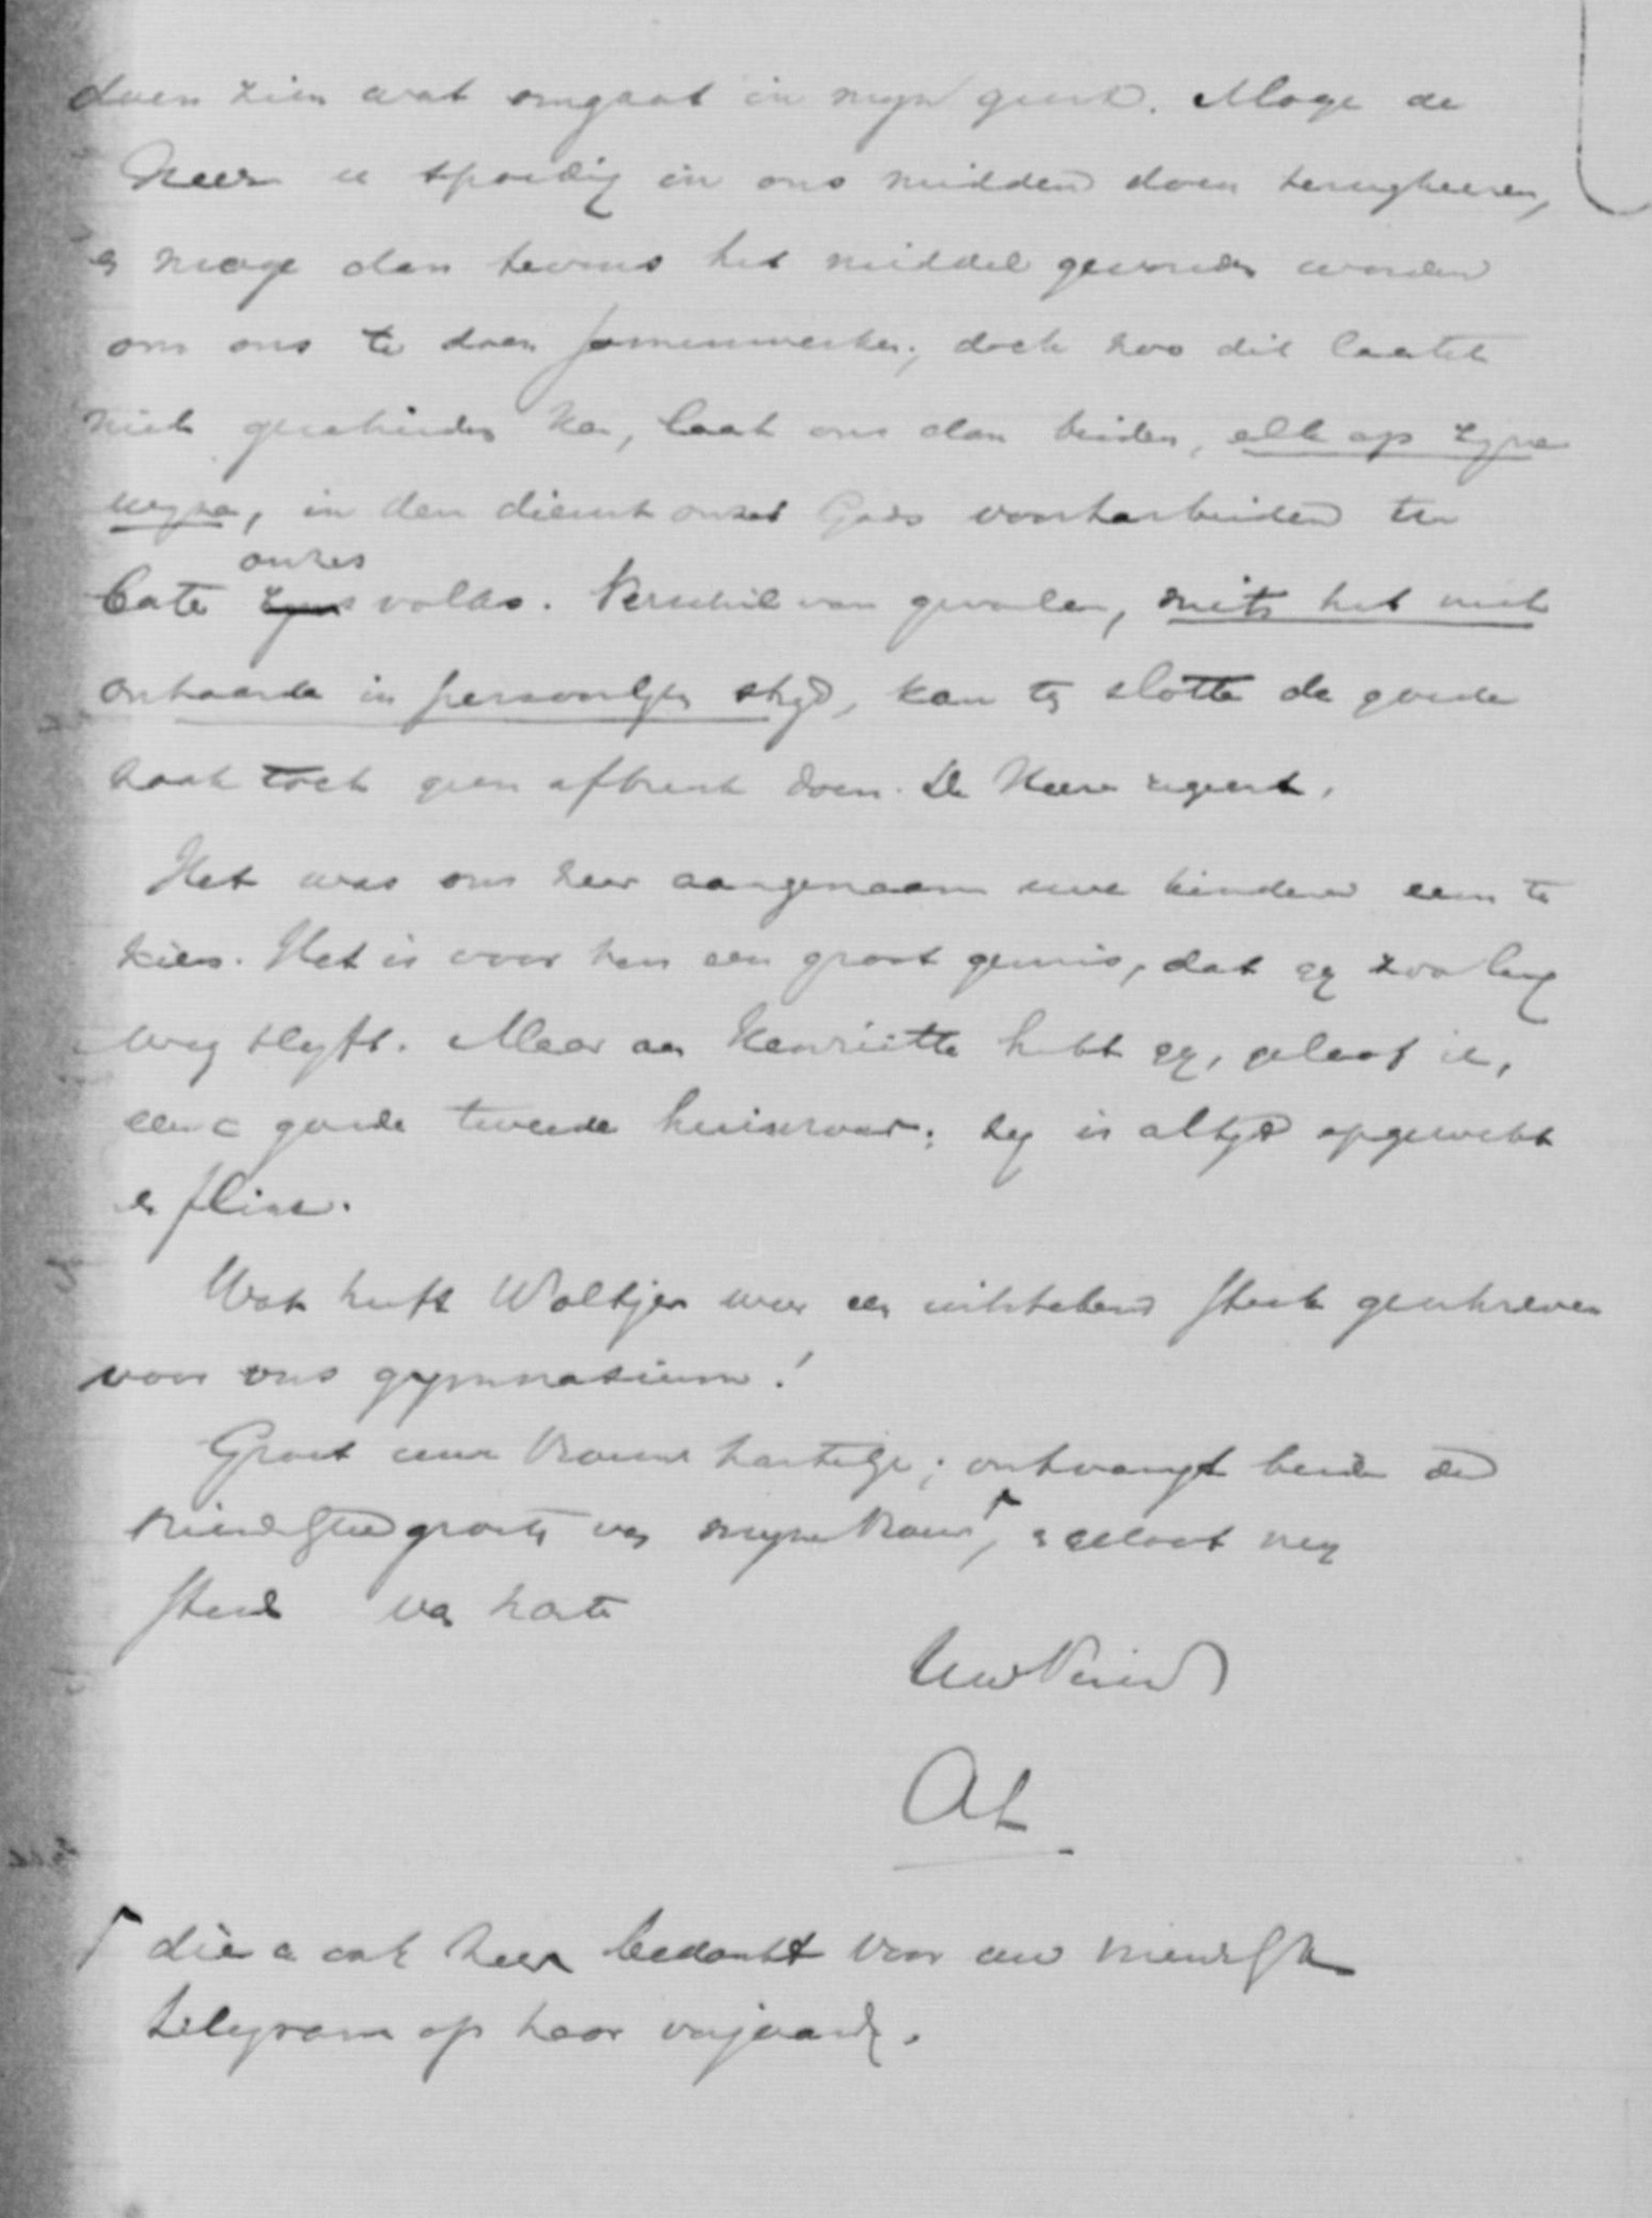 doen zien wat omgaat in mijn geest. Moge de
Heer u spoedig in ons midden doen terugkeeren,
en moge dan tevens het middel gevonden worden
om ons te doen samenwerken; doch zoo dit laatste
niet geschieden kan, laat ons dan beiden, elk op zijne
wijze, in den dienst onzes Gods voortarbeiden ten
onzes
bate zijns volks. Verschil van gevoelen, mits het niet
ontaarde in persoonlijken strijd, kan ten slotte de goede
zaak toch geen afbreuk doen. De Heere regeert.
Het was ons zeer aangenaam uwe kinderen eens te
zien. Het is voor hen een groot gemis, dat gij zoo lang
weg blijft. Maar aan Henriëtte hebt gij, geloof ik,
eene goede tweede huisvrouw; zij is altijd opgewekt
en flink.
Wat heeft Woltjer weer een uitstekend stuk geschreven
voor ons gymnasium!
Groet uwe vrouw hartelijk; ontvangt beiden de
vriendelijke groeten van mijne vrouw, en geloof mij
steeds van harte
Uw Vriend
AL
die u ook zeer bedankt voor uw vriendelijk
telegram op haar verjaardag.